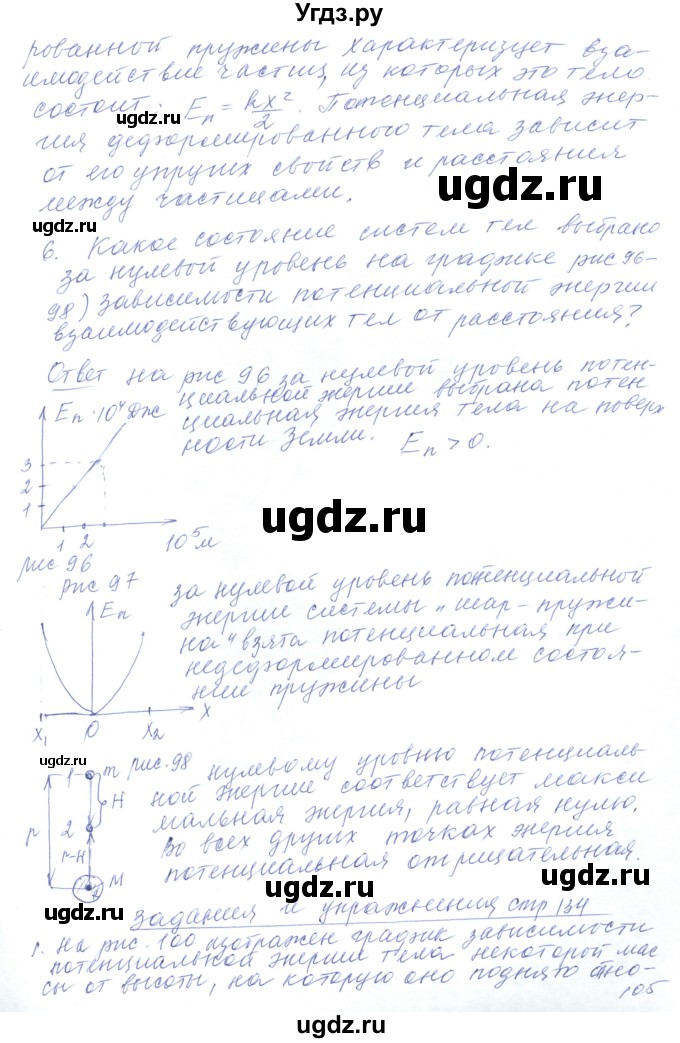 Угдз.ру
рованной пружины характеризует вза-
имодействие частиц, из которых это тело
состоит. Eп = kx²/2. Потенциальная энер-
ugdz.ru
гия деформированного тела зависит
от его упругих свойств и расстояния
между частицами.
ugdz.ru
6. Какое состояние систем тел выбрано
за нулевой уровень на графике рис 96-
98) зависимости потенциальной энергии
взаимодействующих тел от расстояния?
Ответ на рис 96 за нулевой уровень потен-
циальной энергии выбрана потен
циальная энергия тела на поверх
ности Земли. Eп > 0.
Eп·10⁴ Дж
ugdz.ru
3
2
1
1 2 10⁵ м
ugdz.ru
рис 96
рис 97
за нулевой уровень потенциальной
энергии системы „шар-пружи-
на" взята потенциальная при
недеформированном состоя-
нии пружины
Eп
ugdz.ru
x₁ 0 x₂ x
ugdz.ru
рис. 98 нулевому уровню потенциаль
ной энергии соответствует макси
мальная энергия, равная нулю.
Во всех других точках энергия
потенциальная отрицательная.
1 m
H
2
r
r-H
M
ugdz.ru
ugdz.ru
Задания и упражнения стр 134
1. На рис. 100 изображен график зависимости
потенциальной энергии тела некоторой мас
сы от высоты, на которую оно поднято отно-
105
ugdz.ru